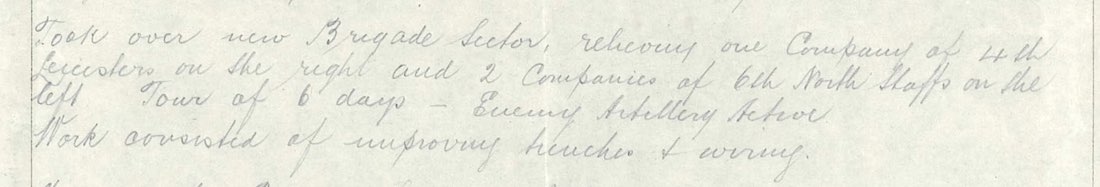 Took over new Brigade Sector, relieving one Company of 4th
Leicesters on the right and 2 Companies of 6th North Staffs on the
left Tour of 6 days - Enemy Artillery Active
Work consisted of improving trenches & wiring.